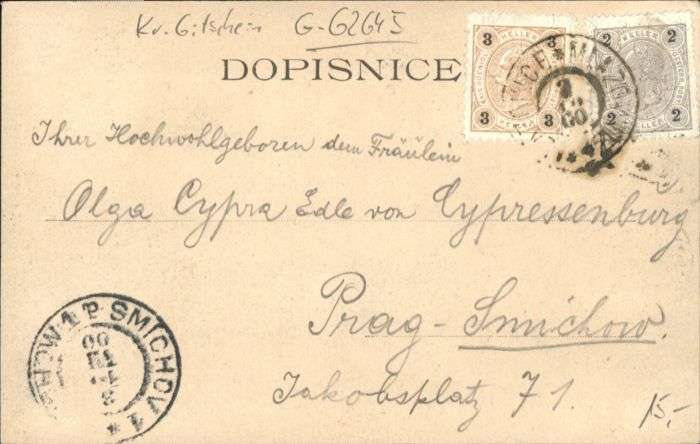 Kr. Gitschein G-62645
DOPISNICE
3 HELLER 3
3 3
2 HELLER 2
2 2
Ihrer Hochwohlgeboren dem Fräulein
Olga Cypra Edle von Cypressenburg
Prag-Smichow.
Jakobsplatz 71.
SMICHOV 1
15,-